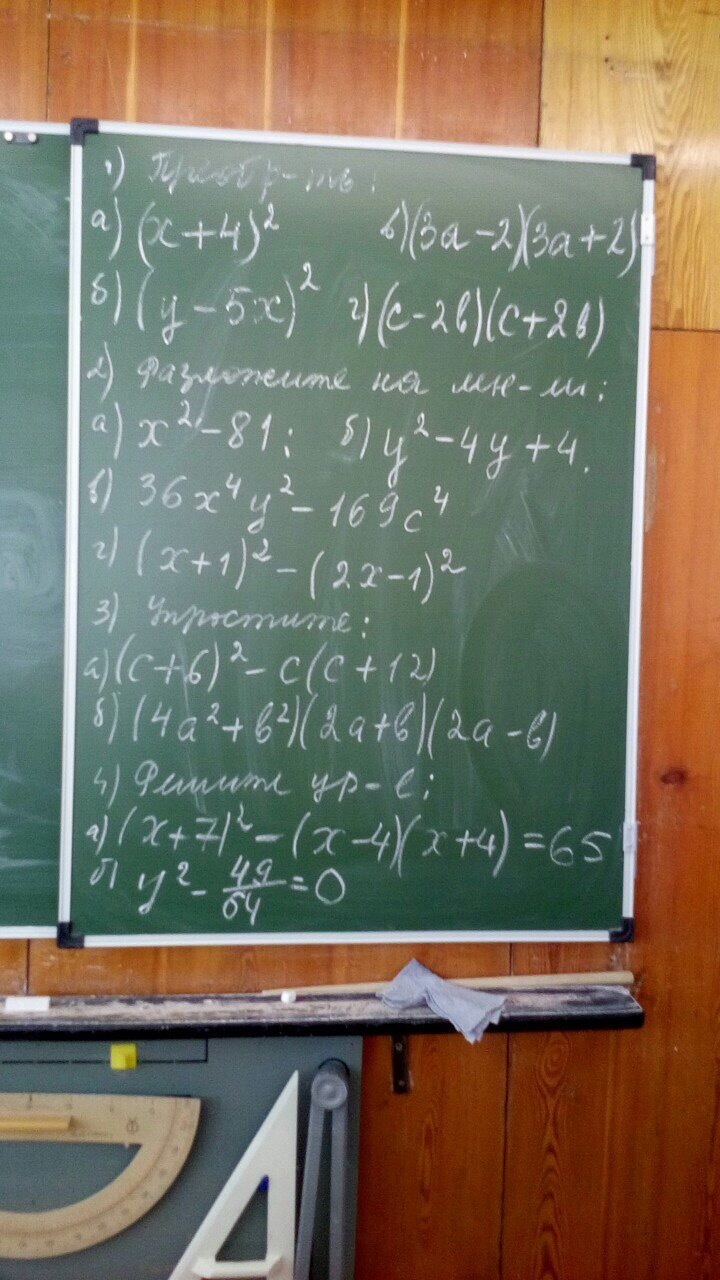 1) Преобр-ть:
а) (x+4)² в) (3a-2)(3a+2)
б) (y-5x)² г) (c-2b)(c+2b)
2) Разложите на мн-ли:
а) x²-81; б) y²-4y+4.
в) 36x⁴y²-169c⁴
г) (x+1)²-(2x-1)²
3) Упростите:
а) (c+6)²-c(c+12)
б) (4a²+b²)(2a+b)(2a-b)
4) Решите ур-е:
а) (x+7)²-(x-4)(x+4)=65
б) y²-49/64=0